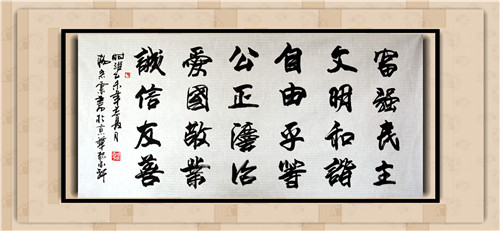 富强民主
文明和諧
自由平等
公正灋治
愛國敬業
誠信友善